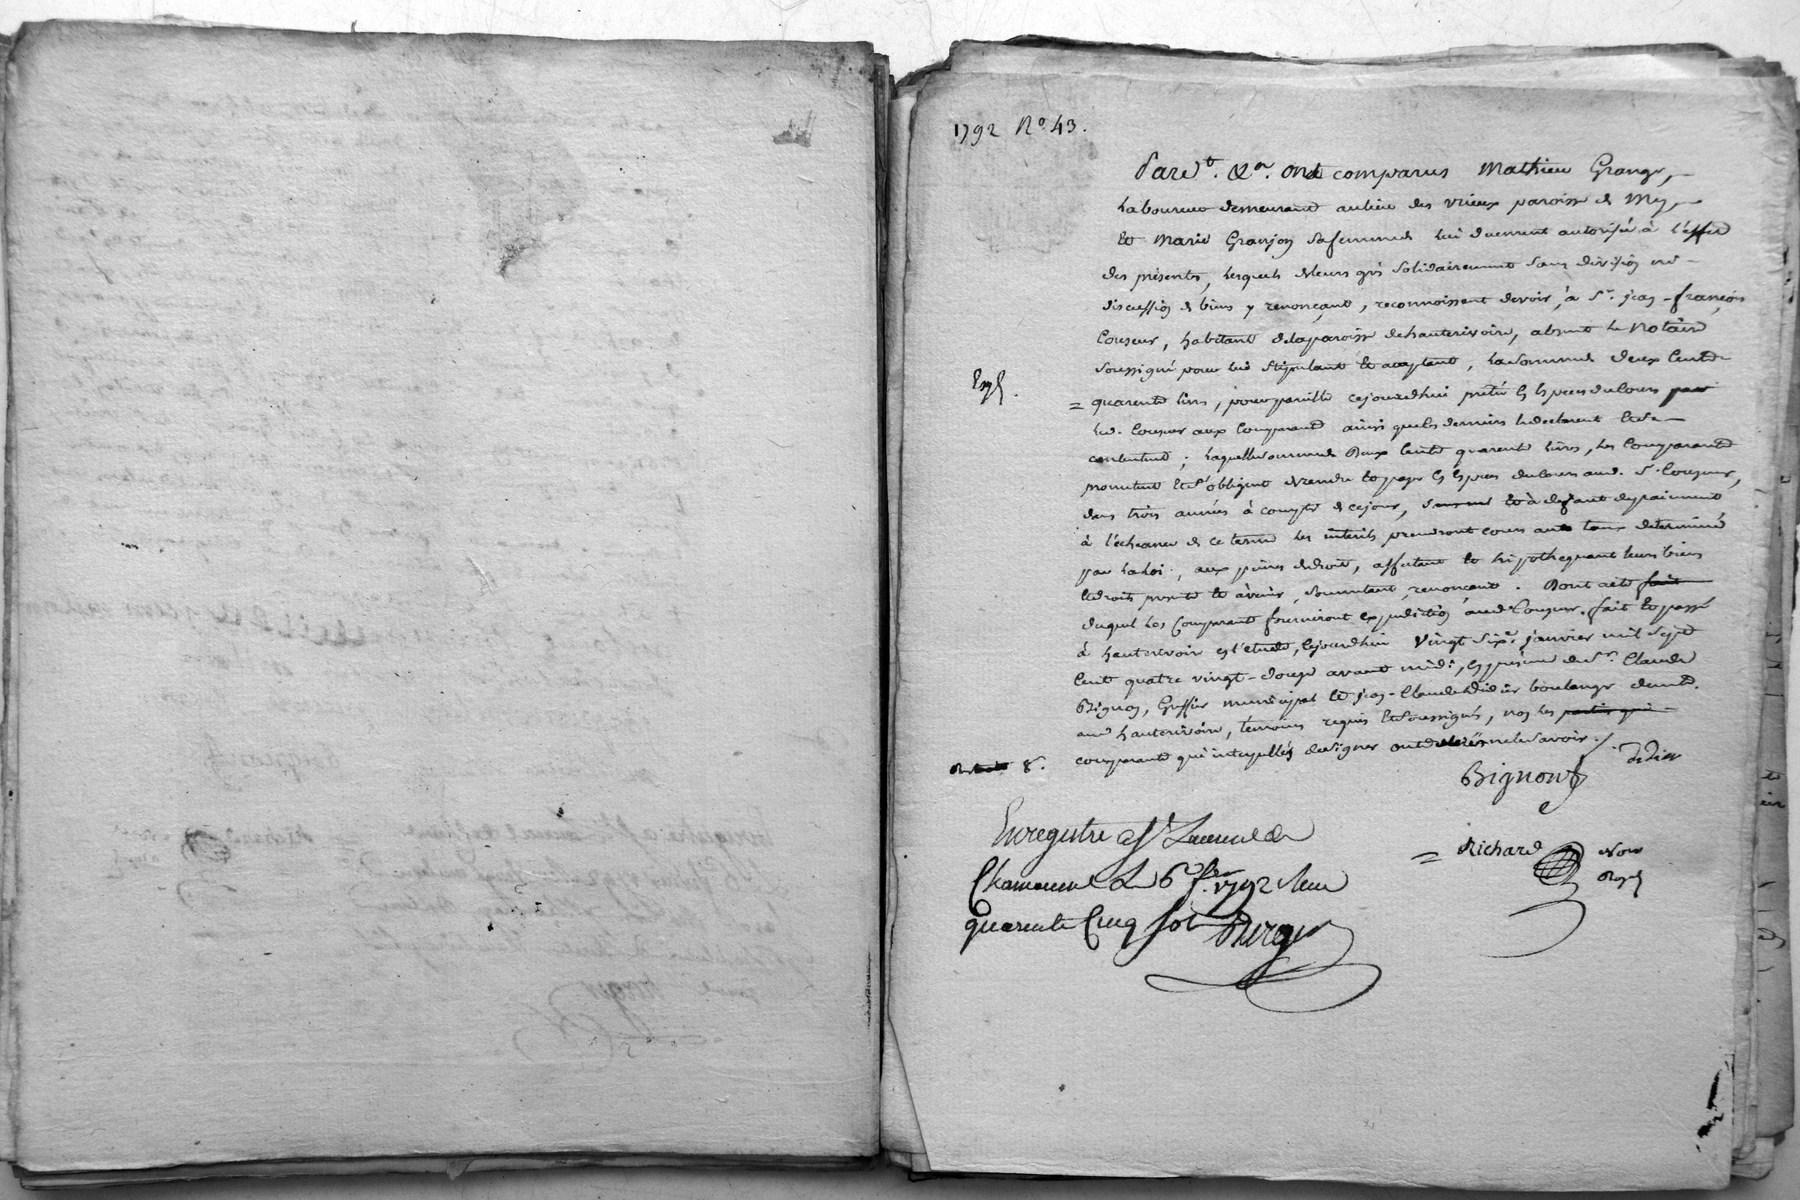 1792 No. 43.
Pard.t &.a ont comparus Mathieu Grange,
laboureur demeurant au lieu des vrieux paroisse de Mey,
et Marie Granjon sa femme de lui duement autorisée à l'effet
des présentes, lesquels de leurs grés solidairement sans division ni
discussion de biens y renonçant, reconnoissent devoir, à Sr. jean-françois
Couseur, habitant de la paroisse de hauterivoire, absent le Notaire
soussigné pour lui stipulant et acceptant, la somme de deux cents
Expé.
= quarente livres, pour pareille cejourdhui prêtée en espèces du cours par
led. Couseur aux comparants ainsi que les derniers le déclarent et s'en
contentent; laquelle somme de Deux cents quarente livres, les Comparants
promettent et s'obligent de rendre et payer en espèces du cours aud. Sr. Couseur,
dans trois années à compter de ce jour, et à défaut de paiement
à l'écheance de ce terme les intérêts prendront cours au taux déterminé
par la loi, aux peines de droit, affectant et hipothequant leurs biens
et droits présents et àvenir, soumettant, renonçant. Dont acte fait
duquel les Comparants fourniront expédition aud. Couseur. fait et passé
à hauterivoir en l'etude, cejourdhui vingt sixe. janvier mil sept
cent quatre vingt-douze avant midi, en présence de Sr. Claude
Bignon, Greffier municipal et jean-Claude Didier boulanger demts.
aud. hauterivoire, temoins requis et soussignés, non les parties qui
comparants qui interpellés de signer ont déclarés ne le savoir./.
8.
Didier
Bignon
Richard
Not.
Royal
Enregistré a St. Laurent de
Chamousset le 6 fer. 1792 Reçu
quarente cinq sols Durger